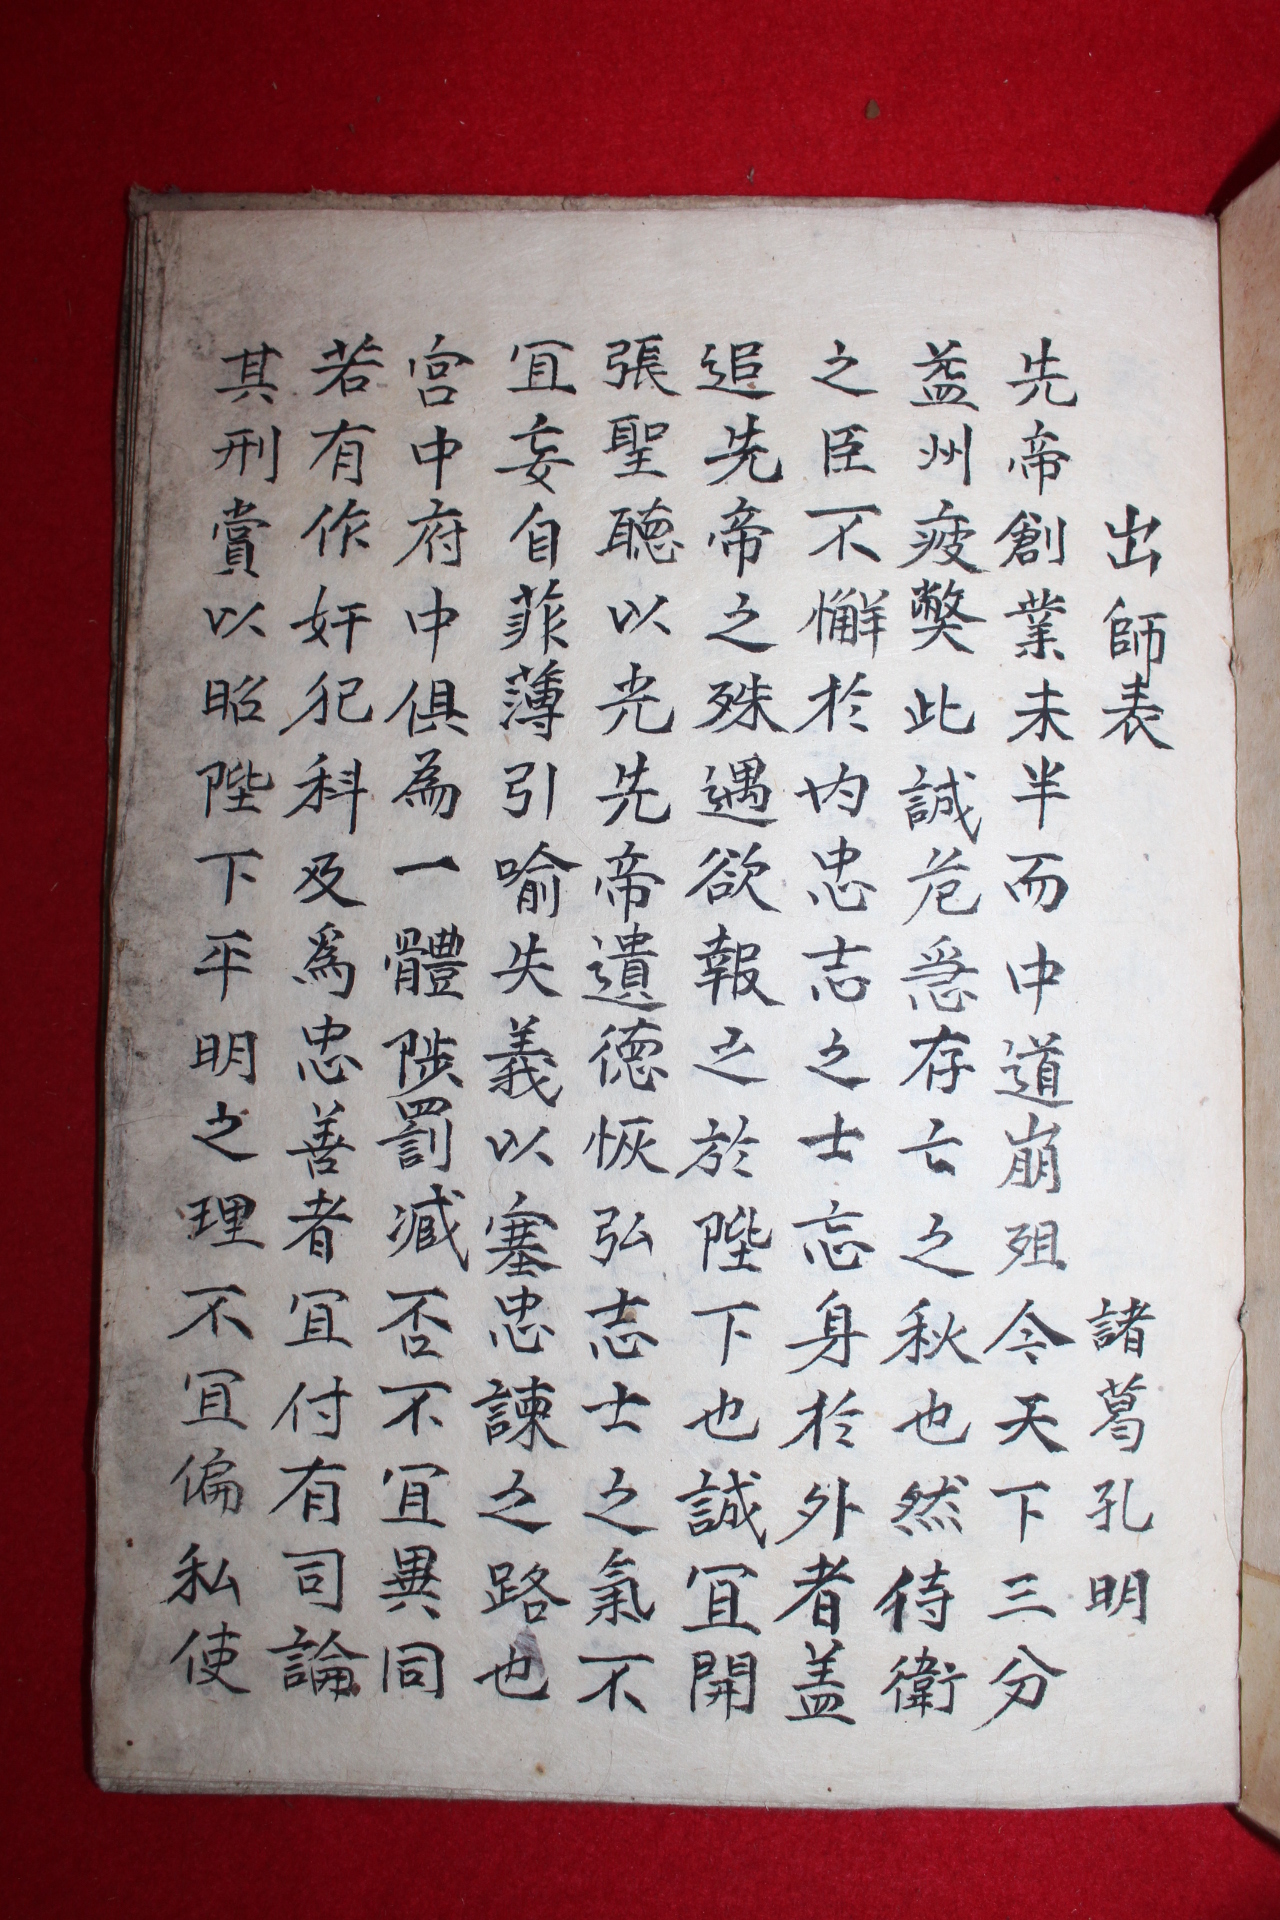 出師表 諸葛孔明
先帝創業未半而中道崩殂今天下三分
益州疲弊此誠危急存亡之秋也然待衛
之臣不懈於内忠志之士忘身於外者盖
追先帝之殊遇欲報之於陛下也誠冝開
張聖聽以光先帝遺德恢弘志士之氣不
冝妄自菲薄引喻失義以塞忠諫之路也
宮中府中俱為一體陟罰臧否不冝異同
若有作奸犯科及爲忠善者冝付有司論
其刑賞以昭陛下平明之理不冝偏私使